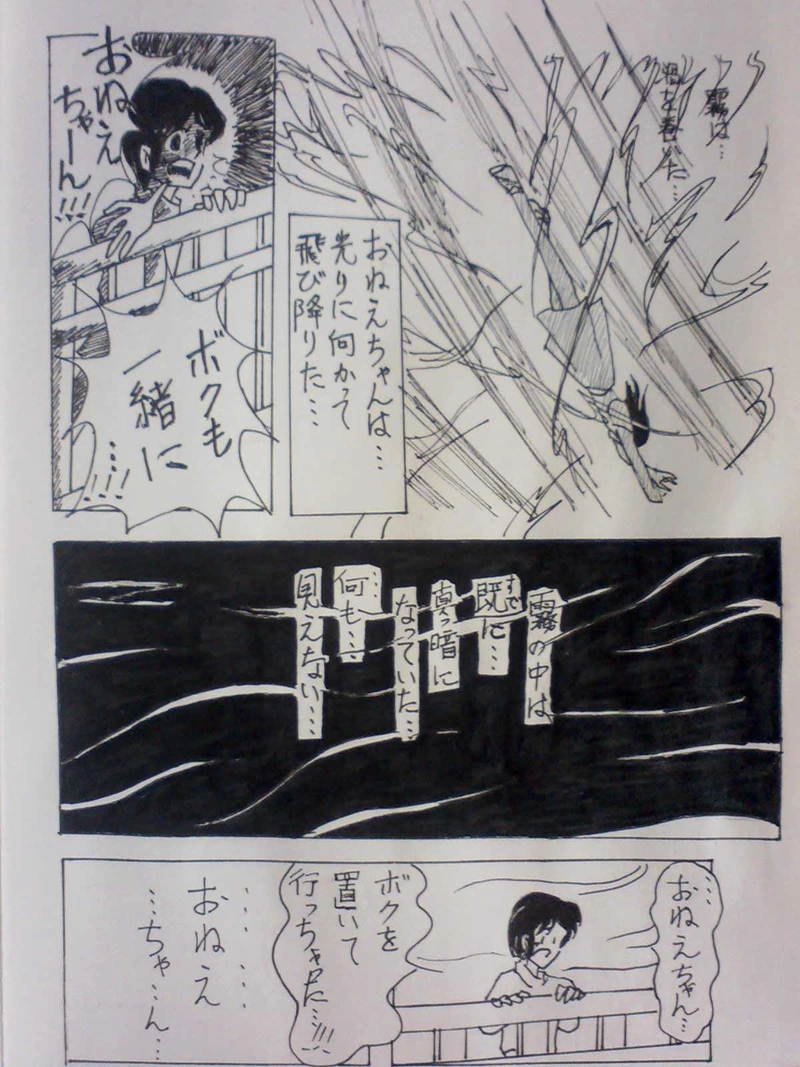 霧は…
渦を巻いた…
おねえちゃんは…
光りに何かって
飛び降りた…
おねえ
ちゃーん!!!
ボクも
一緒に
…!!!
霧の中は
既に…
すで
真っ暗に
なっていた…
…何も…
見えない…
…おねえちゃん…
ボクを
置いて
行っちゃった…!!!
……
おねえ
…ちゃ…ん…